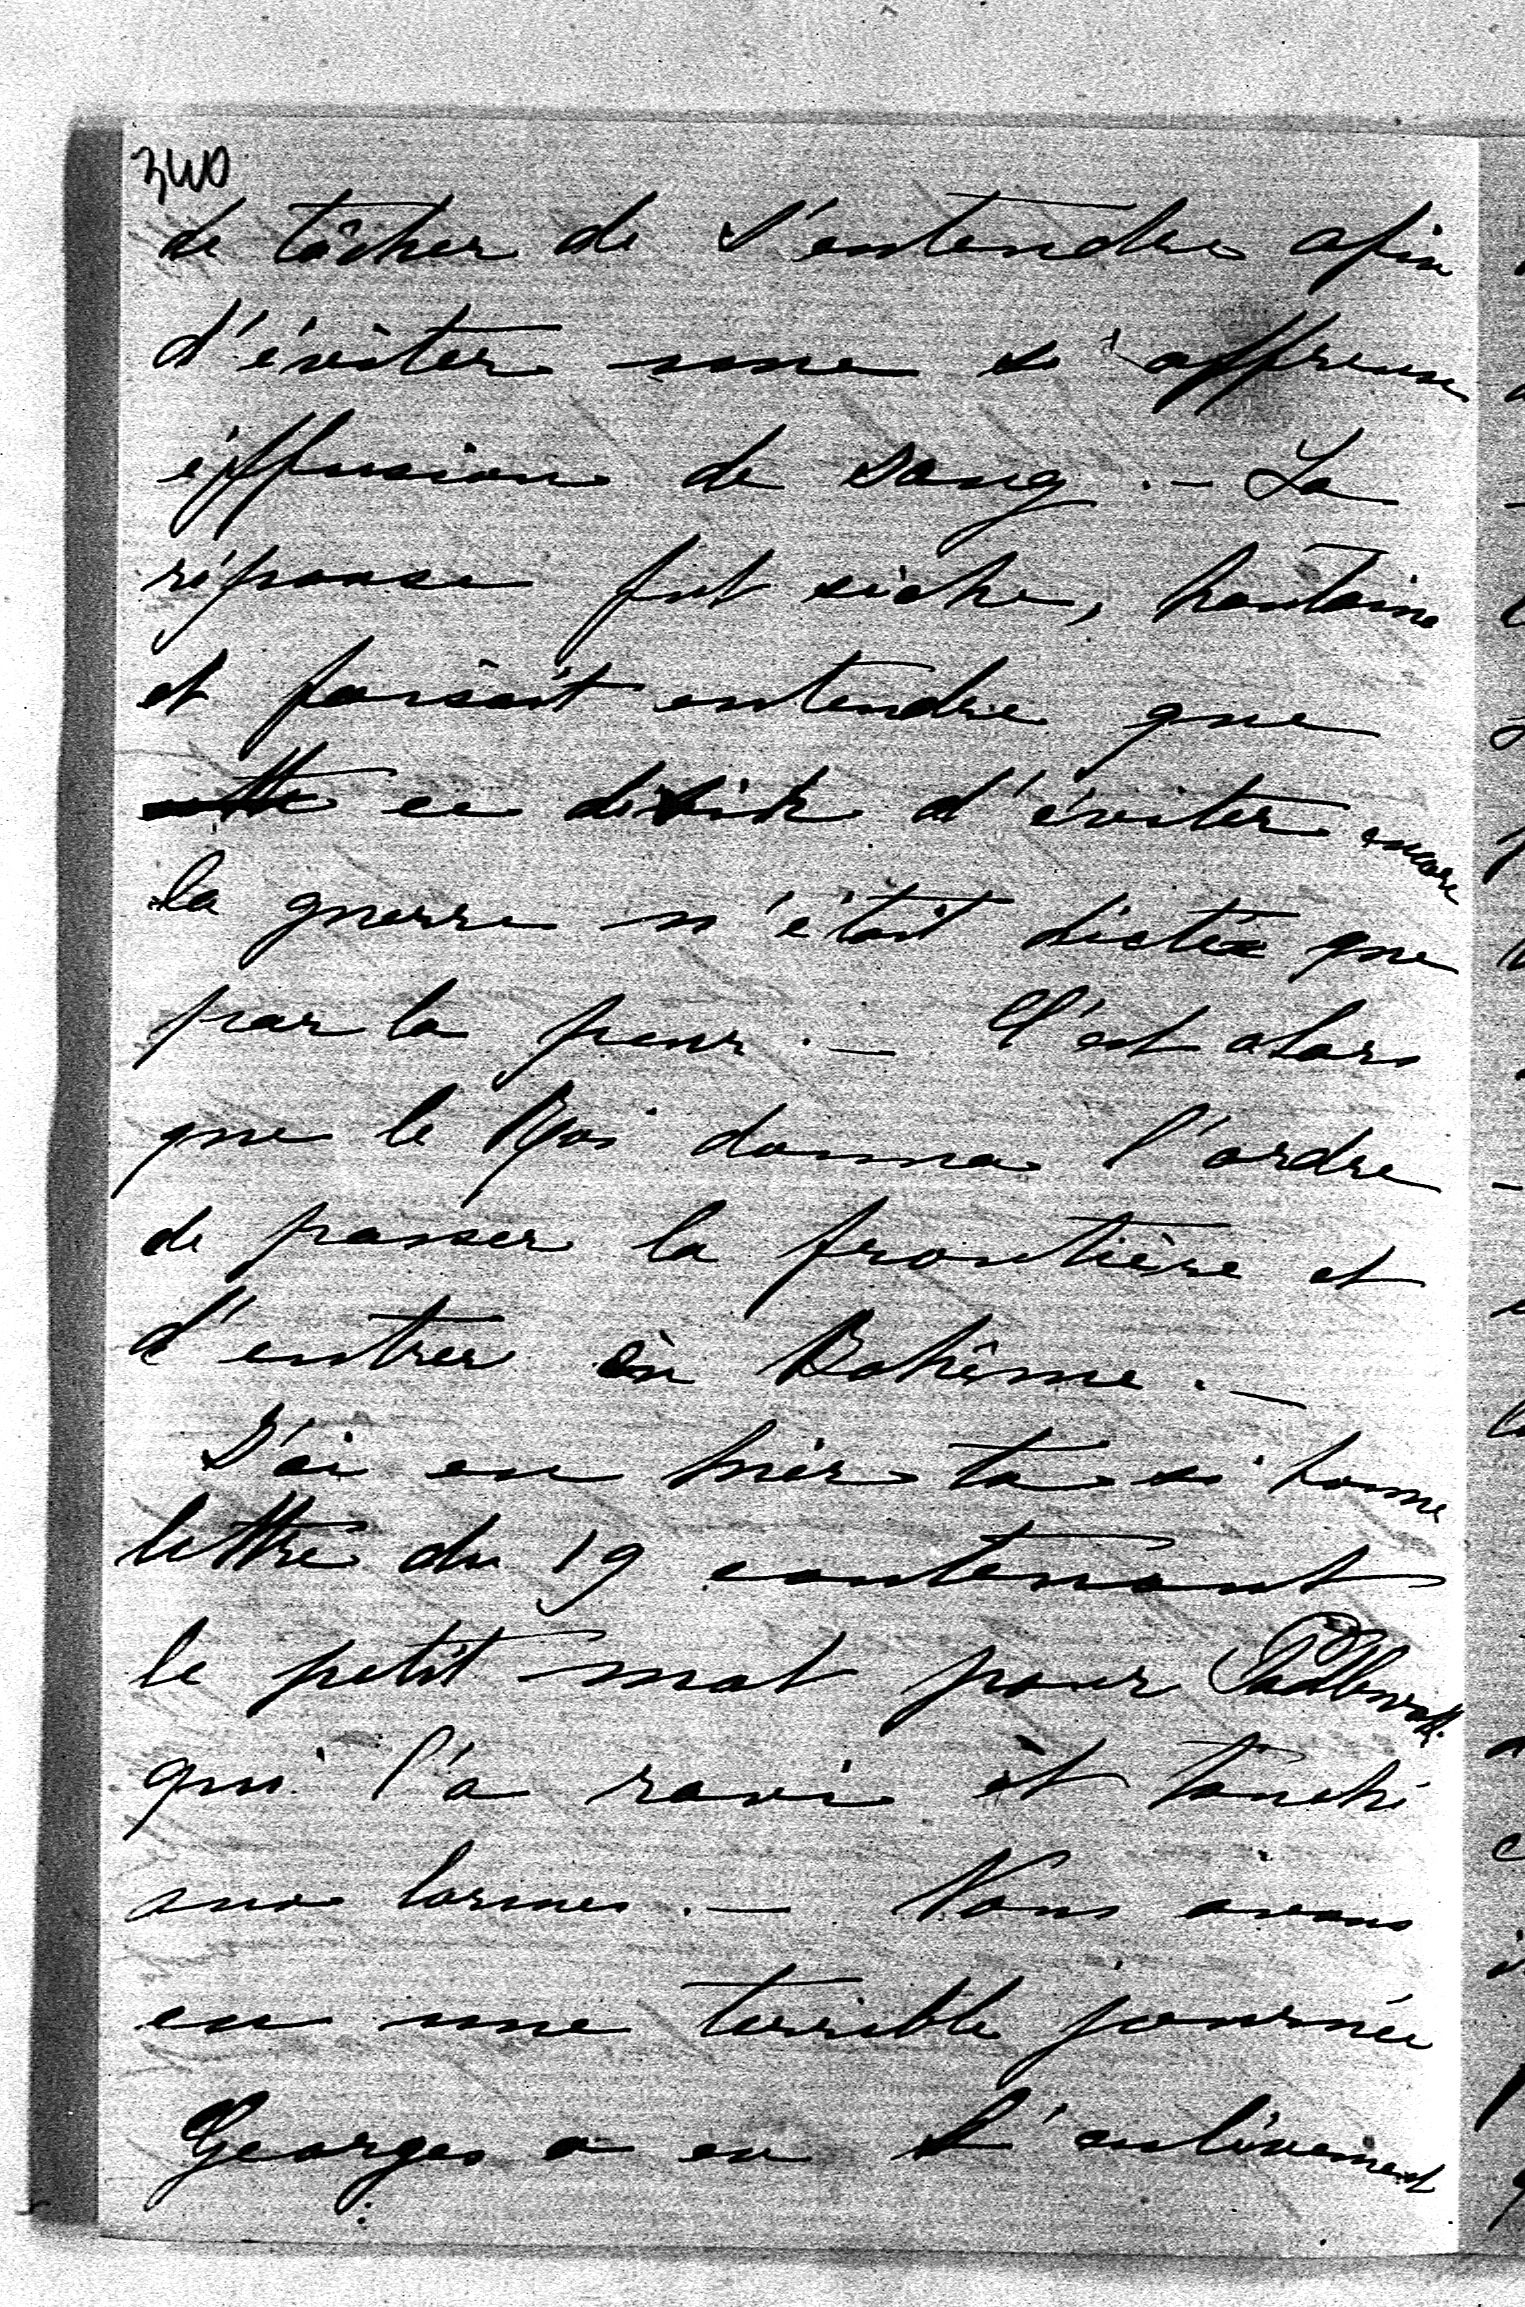 340
de tâcher de s'entendre afin
d'éviter une si affreuse
effusion de sang. — La
réponse fut sèche, hautaine
et faisait entendre que
ce désir d'éviter encore
la guerre n'était dictée que
par la peur. — C'est alors
que le Roi donna l'ordre
de passer la frontière et
d'entrer en Bohême. —
J'ai eu hier ta si bonne
lettre du 19 contenant
le petit mot pour
qui l'a ravi et touché
aux larmes. — Nous avons
eu une terrible journée
Georges a eu l'enlèvement